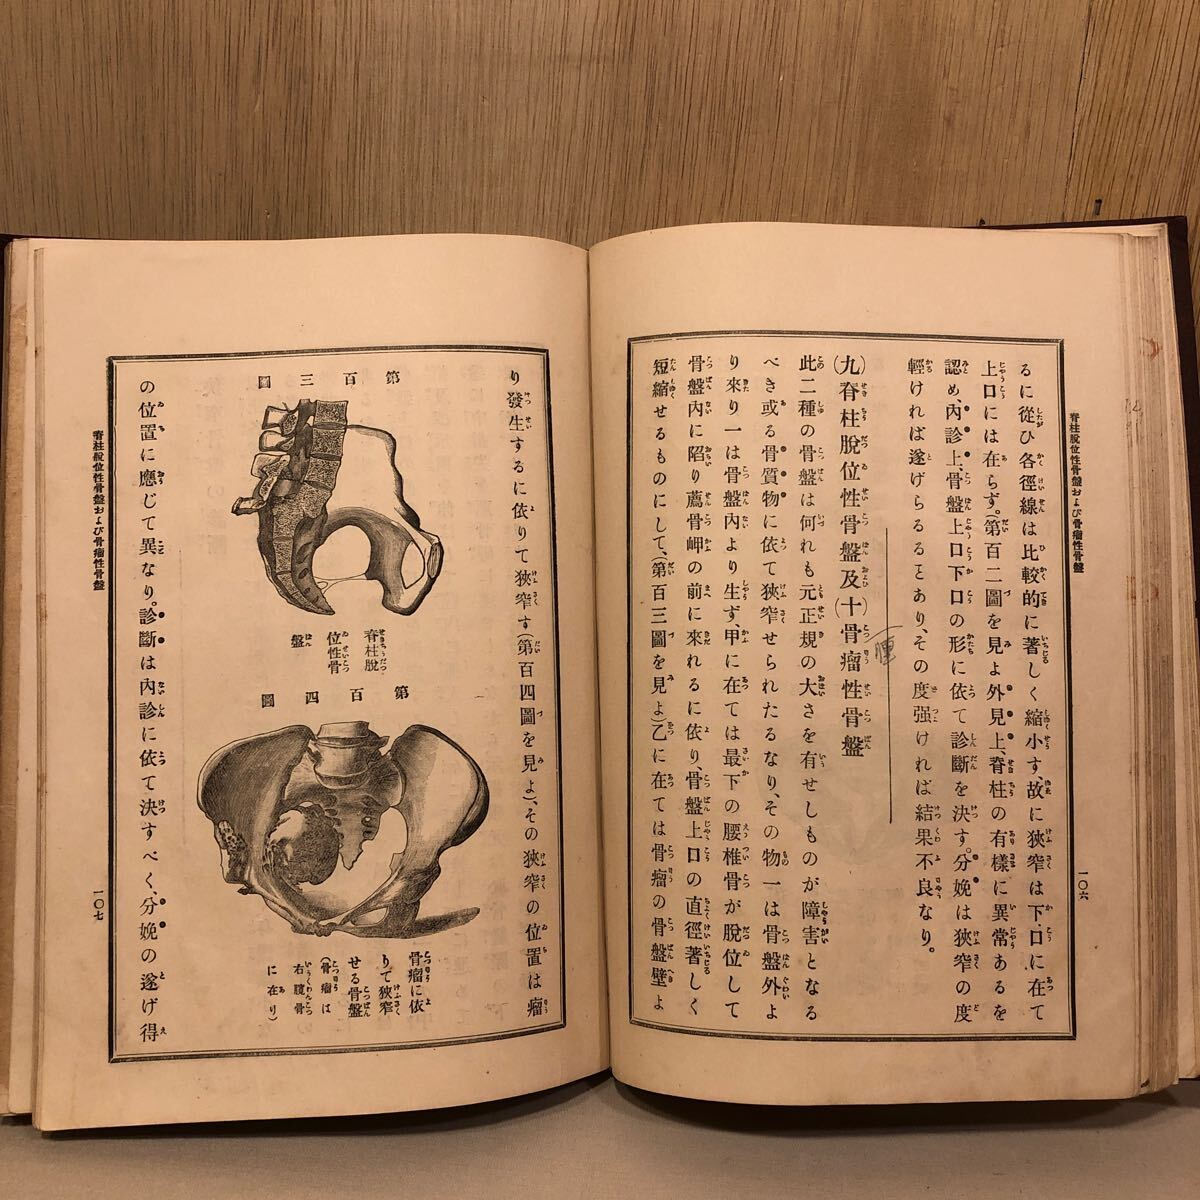 脊柱脫位性骨盤および骨瘤性骨盤
一〇六
るに從ひ各徑線は比較的に著しく縮小す、故に狹窄は下口に在て
上口には在らず。(第百二圖を見よ外見上、脊柱の有樣に異常あるを
認め、內診上、骨盤上口下口の形に依て診斷を決す。分娩は狹窄の度
輕ければ遂げらるゝとあり、その度强ければ結果不良なり。
(九)脊柱脫位性骨盤及(十)骨瘤性骨盤
腫
此二種の骨盤は何れも元正規の大さを有せしものが障害となる
べき或る骨質物に依て狹窄せられたるなり、その物一は骨盤外よ
り來り一は骨盤內より生ず、甲に在ては最下の腰椎骨が脫位して
骨盤內に陷り薦骨岬の前に來れるに依り、骨盤上口の直徑著しく
短縮せるものにして、(第百三圖を見よ)乙に在ては骨瘤の骨盤壁よ
り發生するに依りて狹窄す(第百四圖を見よ)、その狹窄の位置は瘤
第百三圖
脊柱脫
位性骨
盤
第百四圖
骨瘤に依
りて狹窄
せる骨盤
(骨瘤は
右髖骨
に在り)
の位置に應じて異なり。診斷は內診に依て決すべく、分娩の遂げ得
脊柱脫位性骨盤および骨瘤性骨盤
一〇七